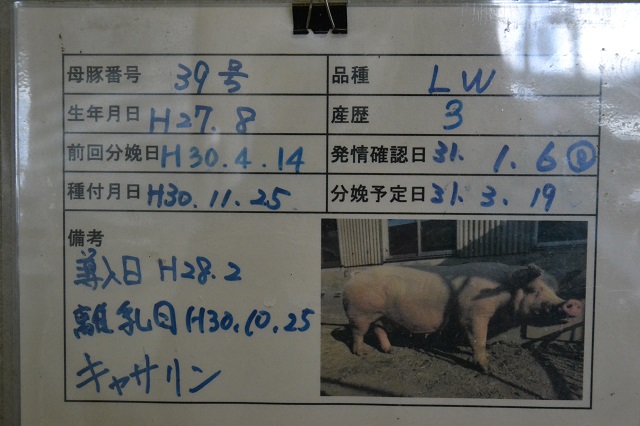 母豚番号 39号 品種 LW
生年月日 H27.8 産歴 3
前回分娩日 H30.4.14 発情確認日 31.1.6
種付月日 H30.11.25 分娩予定日 31.3.19
備考
導入日 H28.2
離乳日 H30.10.25
キャサリン